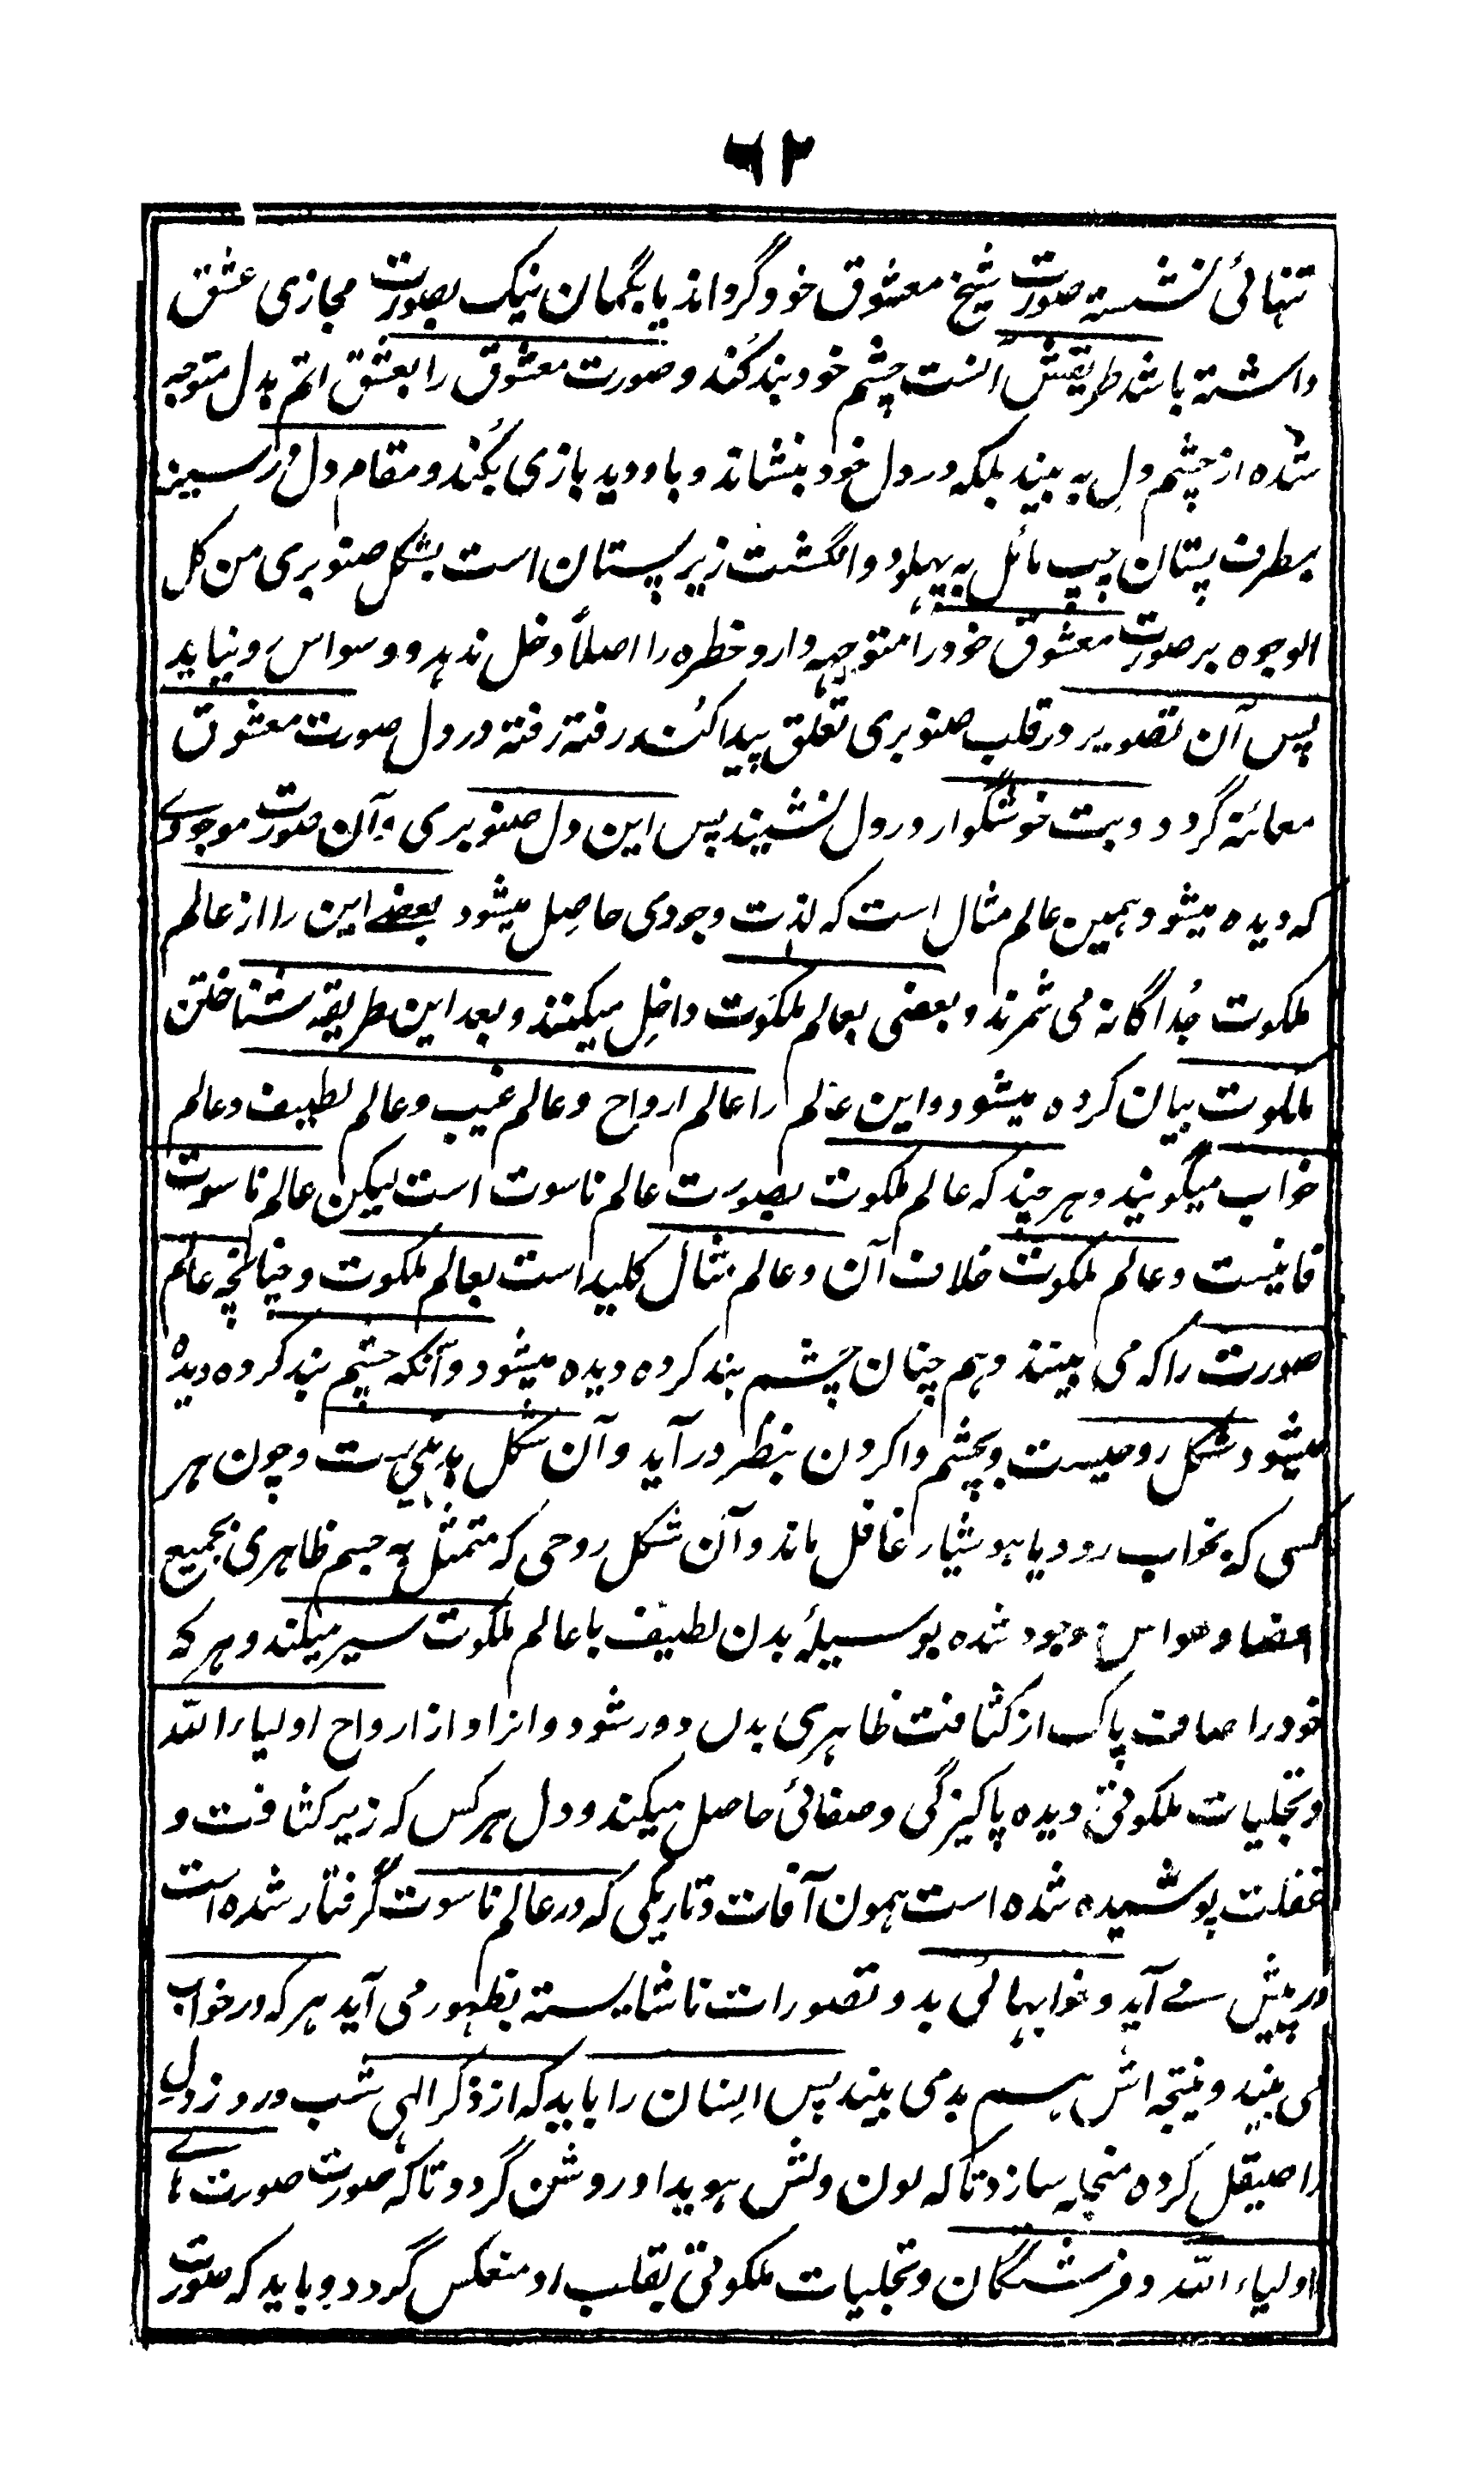 ۶۲
تنهائی نشسته صورت شیخ معشوق خود گرداند یا بگمان نیک بصورت مجازی عشق
داشته باشد طریقش آنست چشم خود بند کند و صورت معشوق را بعشق اتم بدل متوجه
شده از چشم دل به بیند بلکه در دل خود بنشاند و با و دید بازی بکند و مقام دل در سینه
بطرف پستان چپ مائل به پهلو دو انگشت زیر پستان است بشکل صنوبری من کل
الوجوه بر صورت معشوق خود را متوجهه دارد و خطره را اصلاً دخل ندهد و وسواس رو نیاید
پس آن تصویر در قلب صنوبری تعلق پیدا کند رفته رفته در دل صورت معشوق
معائنه گردد و بت خوشگوار در دل نشیند پس این دل صنوبری و آن صورت موجودے
که دیده میشود همین عالم مثال است که لذت وجودی حاصل میشود بعضے این را از عالم
ملکوت جداگانه می شمرند و بعضی بعالم ملکوت داخل میکنند و بعد این طریقه شناختن
ملکوت بیان کرده میشود و این عالم را عالم ارواح و عالم غیب و عالم لطیف و عالم
خواب میگویند و هر چند که عالم ملکوت بصورت عالم ناسوت است لیکن عالم ناسوت
فانیست و عالم ملکوت خلاف آن و عالم مثال کلید است بعالم ملکوت و چنانچه عالم
صورت را که می بینند و هم چنان چشم بند کرده دیده میشود و آنکه چشم بند کرده دیده
میشود شکل روحیست و بچشم وا کردن بنظر در آید و آن شکل بدنیست و چون هر
کسی که بخواب رود یا هوشیار غافل ماند و آن شکل روحی که متمثل به جسم ظاهری بجمیع
اعضا و حواس وجود شده بوسیلهٔ بدن لطیف با عالم ملکوت سیر میکند و هر که
خود را صاف پاک از کثافت ظاهری بدن دور شود و انرا و از ارواح اولیاء الله
و تجلیات ملکوتی دیده پاکیزگی و صفائی حاصل میکند و دل هر کس که زیر کثافت و
غفلت پوشیده شده است همون آفات و تاریکی که در عالم ناسوت گرفتار شده است
در پیش مے آید و خوابهائی بد و تصورات ناشایسته بظهور می آید هر که در خواب
می بیند و نتیجه اش هم بد می بیند پس انسان را باید که از ذکر الهی شب و روز دل
را صیقل کرده منجلیه سازد تا که لون دلش هویدا و روشن گردد تا که صورت صورت هائے
اولیاء الله و فرشتگان و تجلیات ملکوتی بقلب او منعکس گردد و باید که صورت